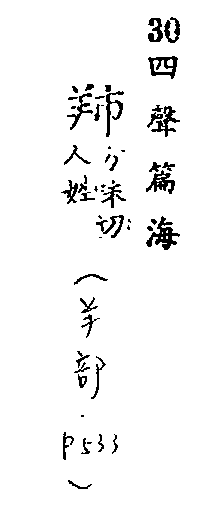 30 四聲篇海
分沫切
人姓
(羊部．p533)